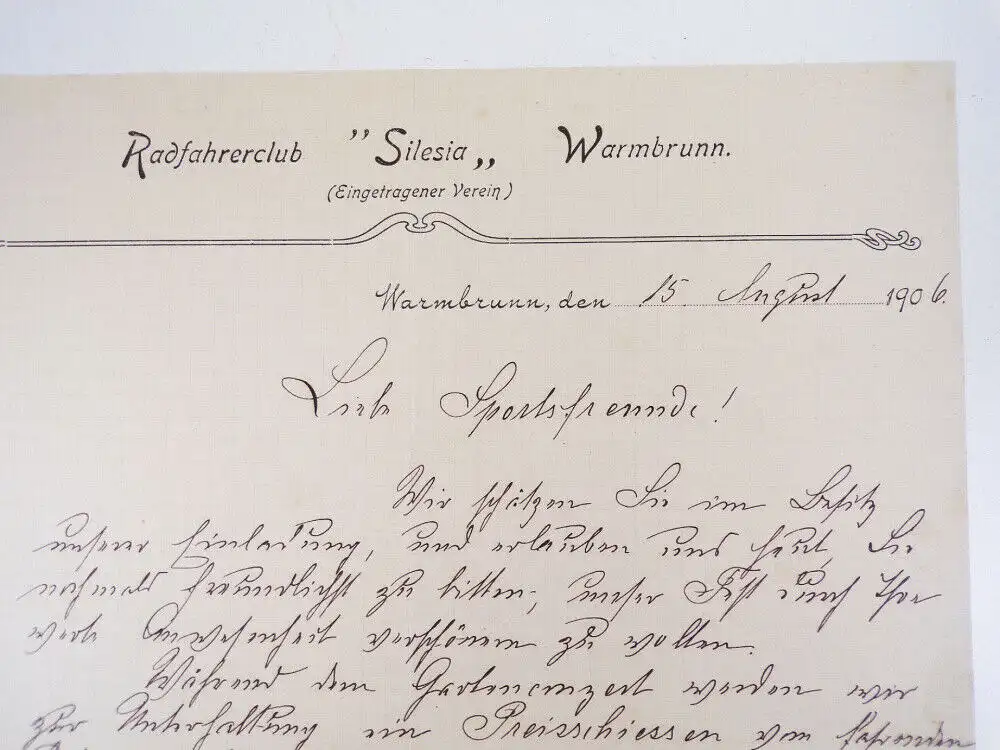 Radfahrerclub "Silesia„ Warmbrunn.
(Eingetragener Verein)
Warmbrunn, den 15. August 1906.
Liebe Sportsfreunde!
Wir schätzen Sie im Besitz
unserer Einladung, und erlauben uns heut, Sie
nochmals freundlichst zu bitten, unser Fest durch Ihre
werte Anwesenheit verschönern zu wollen.
Während dem Gartenconzert werden wir
zur Unterhaltung ein Preisschiessen vom fahrenden